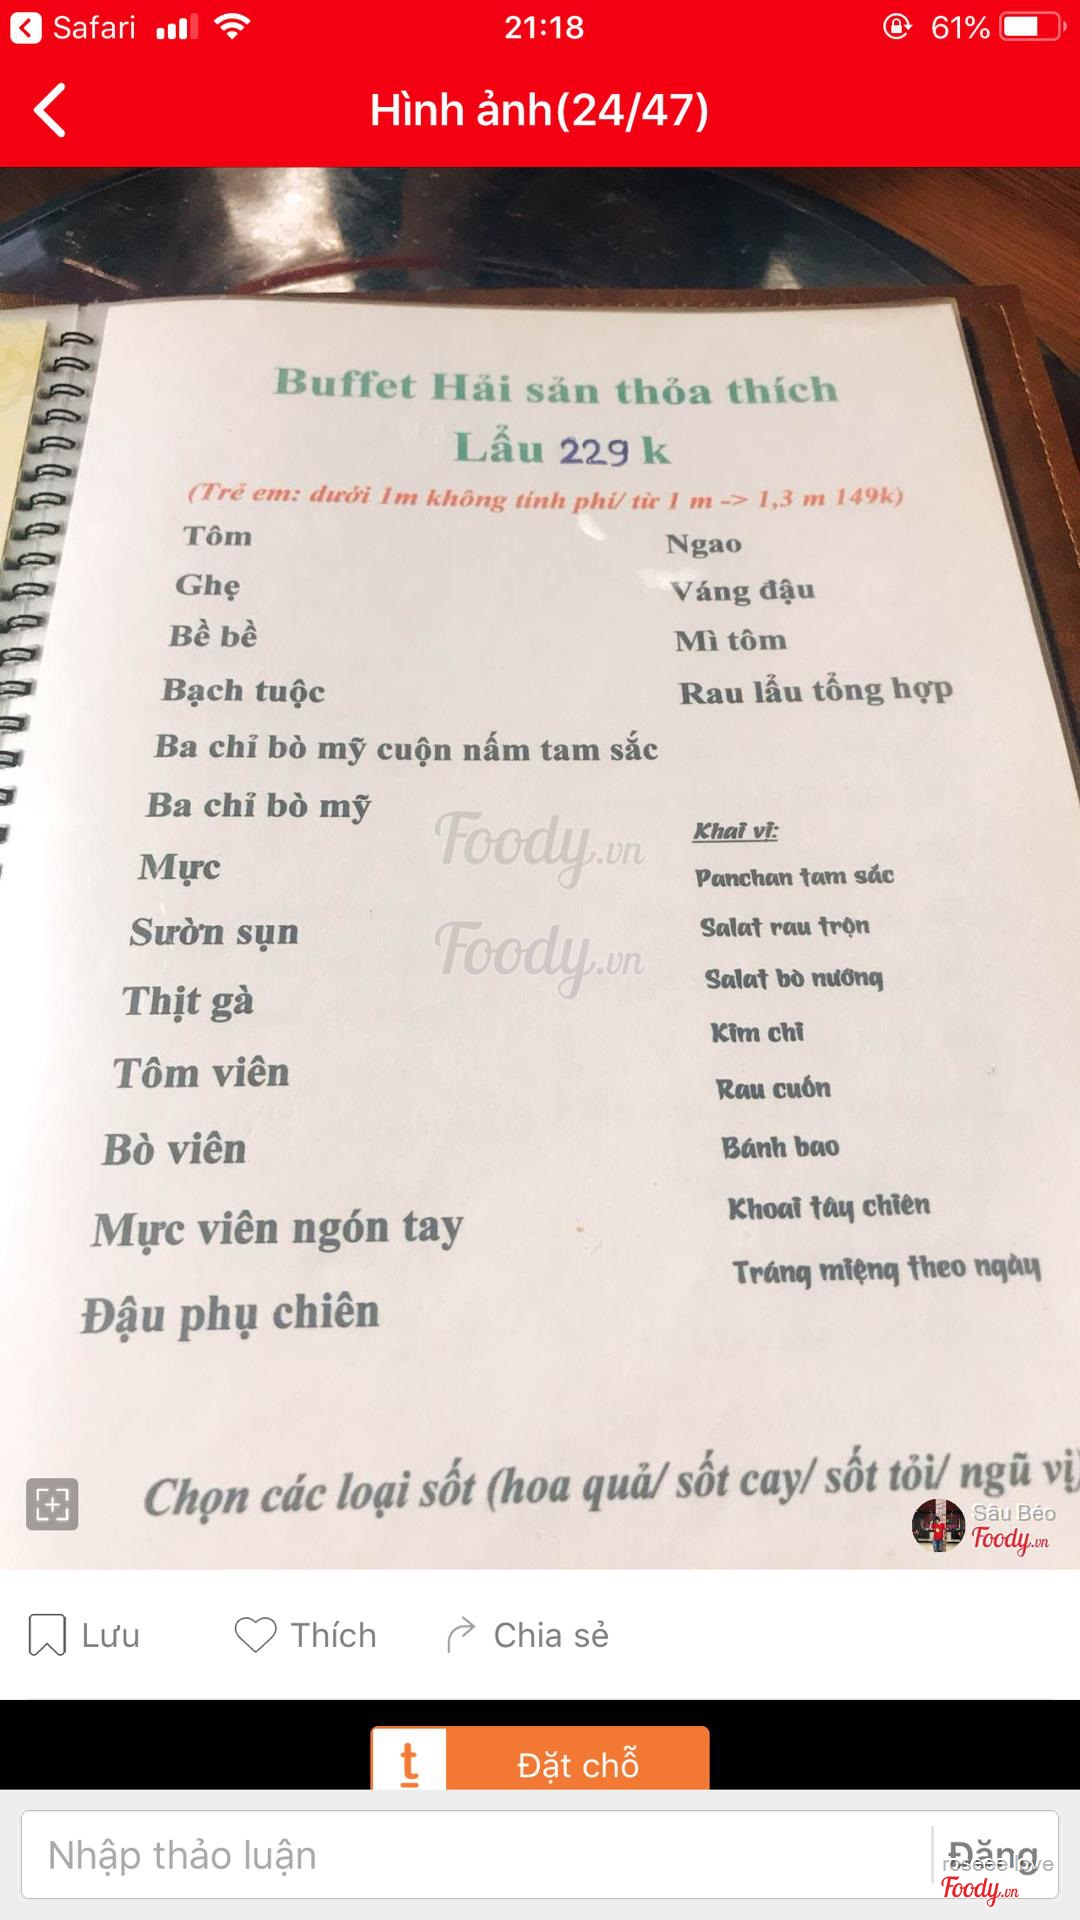 Safari
21:18
61%
Hình ảnh(24/47)
Buffet Hải sản thỏa thích
Lẩu 229 k
(Trẻ em: dưới 1m không tính phí/ từ 1 m -> 1,3 m 149k)
Tôm
Ghẹ
Bề bề
Bạch tuộc
Ba chỉ bò mỹ cuộn nấm tam sắc
Ba chỉ bò mỹ
Mực
Sườn sụn
Thịt gà
Tôm viên
Bò viên
Mực viên ngón tay
Đậu phụ chiên
Ngao
Váng đậu
Mì tôm
Rau lẩu tổng hợp
Khai vị:
Panchan tam sắc
Salat rau trộn
Salat bò nướng
Kim chi
Rau cuốn
Bánh bao
Khoai tây chiên
Tráng miệng theo ngày
Foody.vn
Foody.vn
Chọn các loại sốt (hoa quả/ sốt cay/ sốt tỏi/ ngũ vị)
Sâu Béo
Foody.vn
Lưu
Thích
Chia sẻ
t
Đặt chỗ
Nhập thảo luận
Đăng
roseee love
Foody.vn